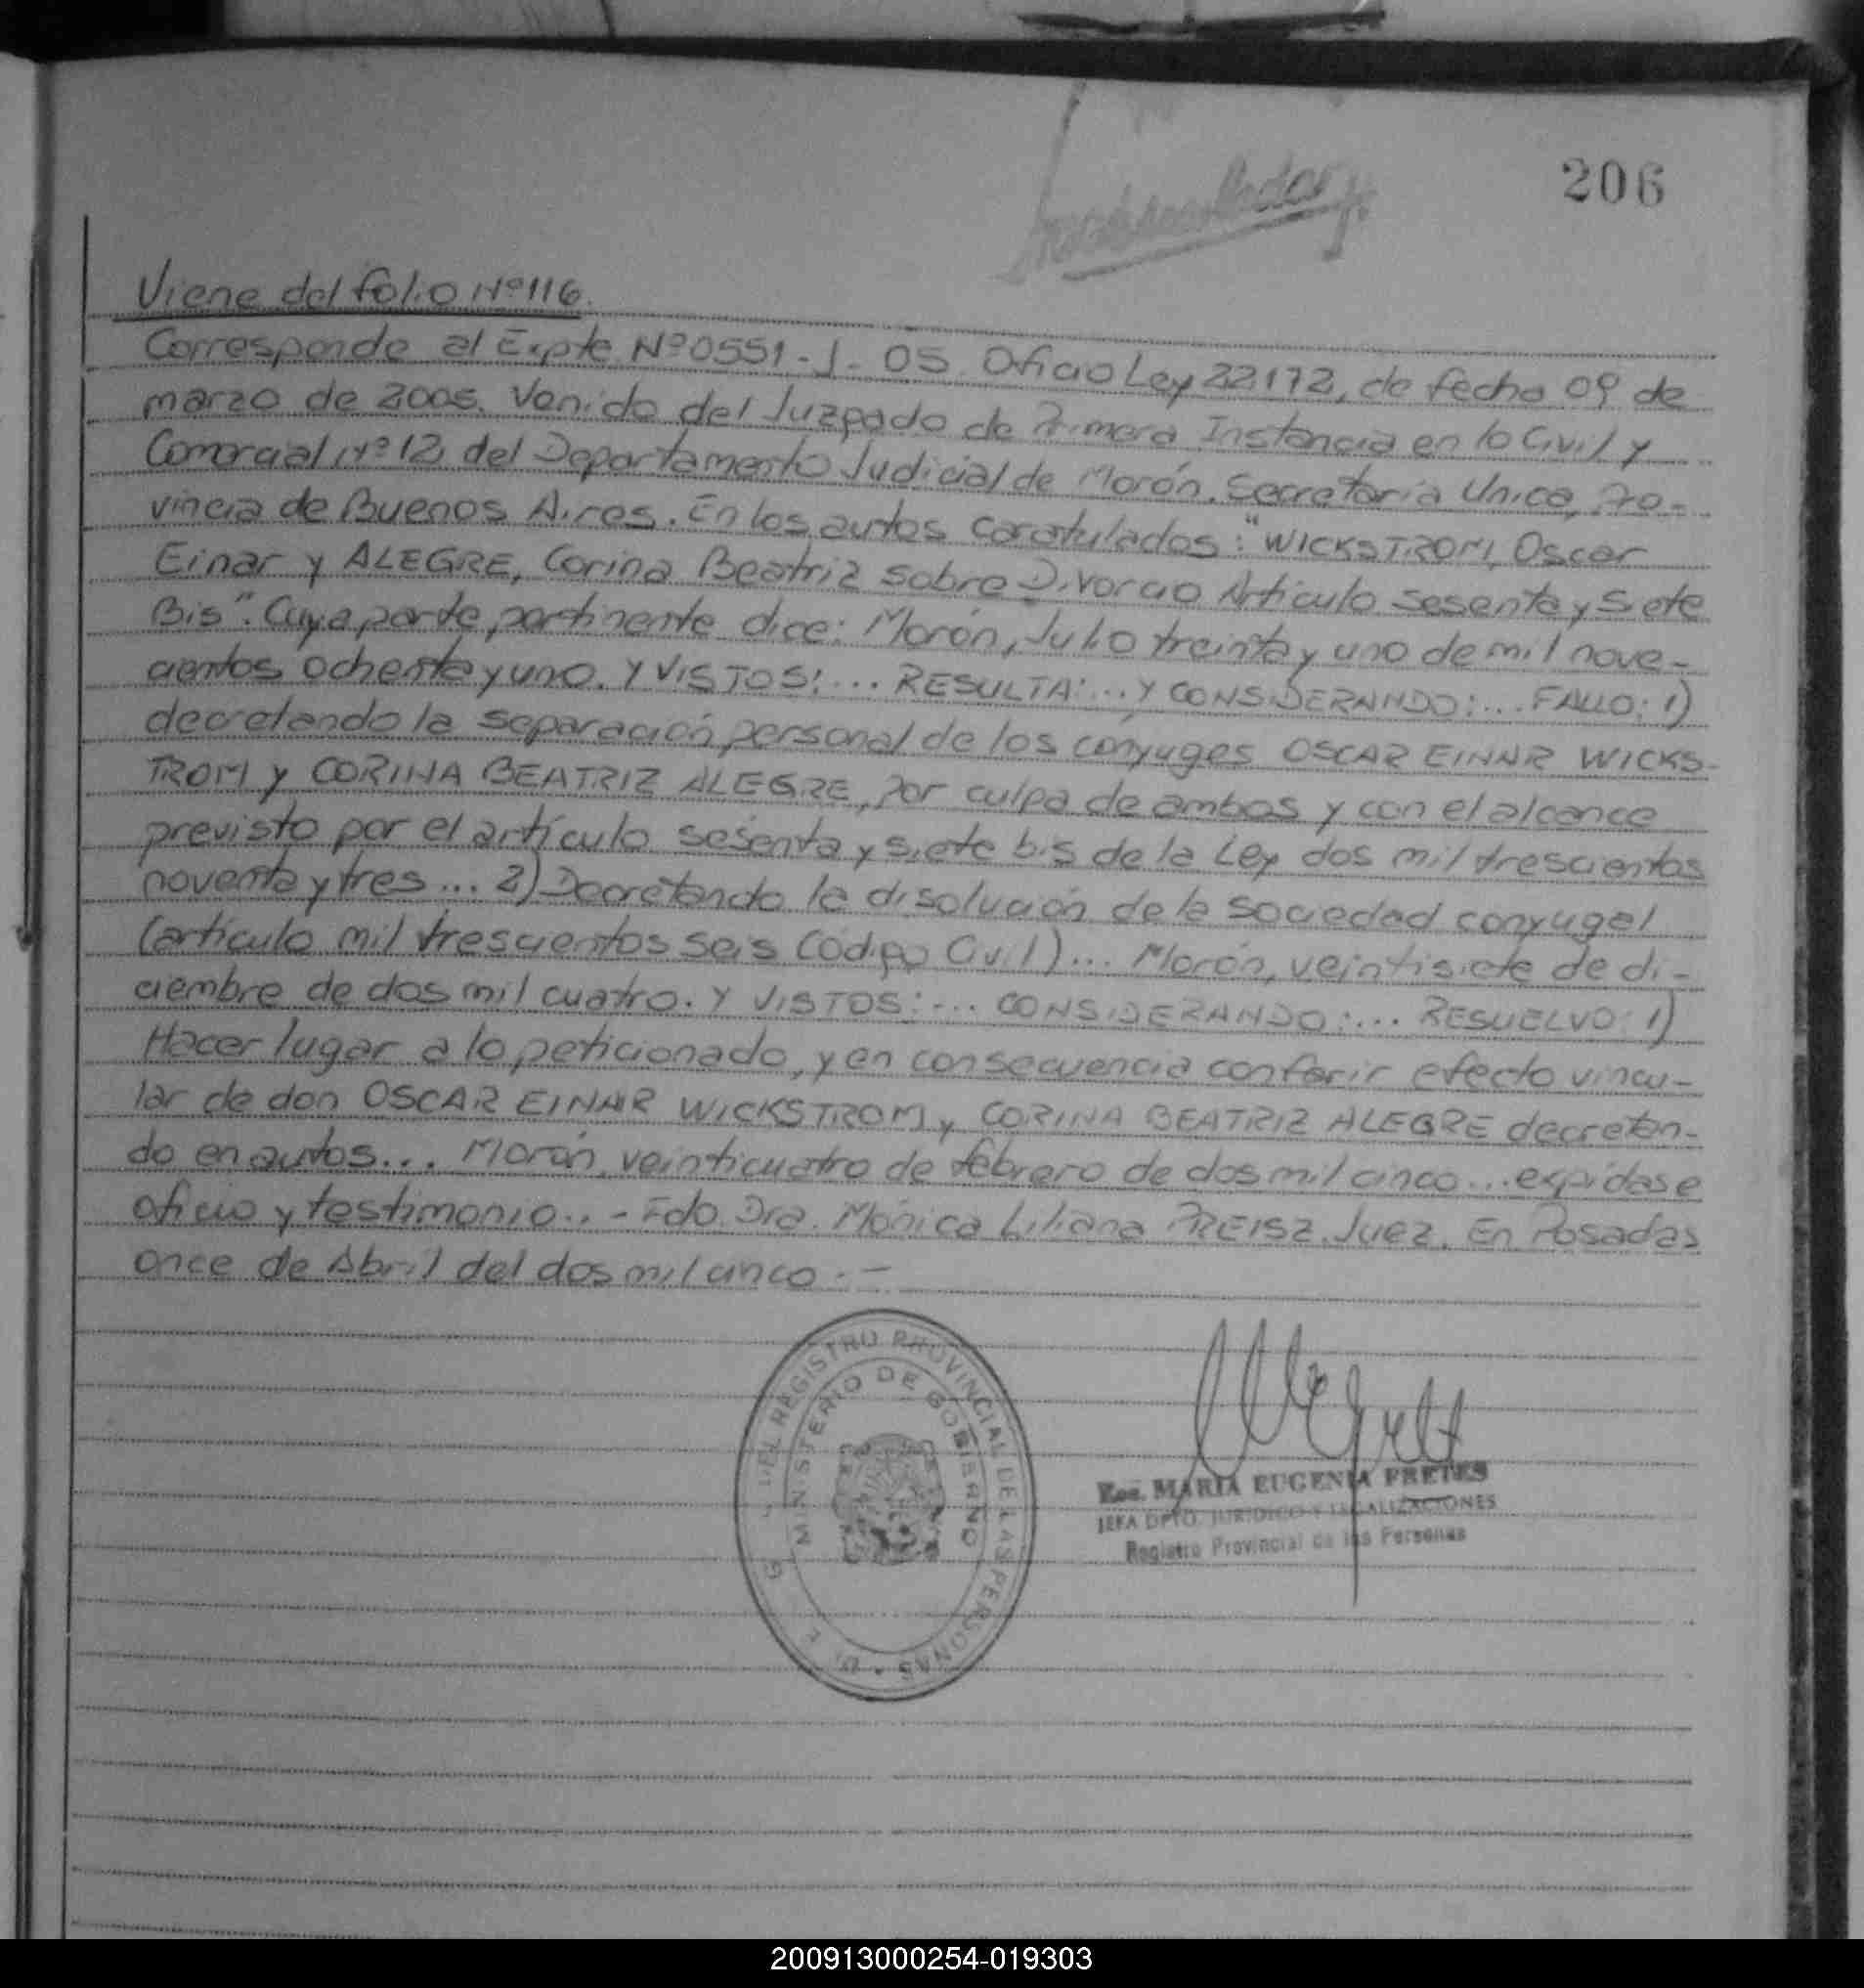 206
Viene del folio Nº 116.
Corresponde al Expte Nº 0551-J-05. Oficio Ley 22172, de fecha 09 de
marzo de 2005. Venido del Juzgado de Primera Instancia en lo Civil y
Comercial Nº 12, del Departamento Judicial de Morón. Secretaría Unica, Pro-
vincia de Buenos Aires. En los autos caratulados: "WICKSTROM, Oscar
Einar y ALEGRE, Corina Beatriz sobre Divorcio Artículo sesenta y siete
Bis". Cuya parte pertinente dice: Morón, Julio treinta y uno de mil nove-
cientos ochenta y uno. Y VISTOS:... RESULTA:... Y CONSIDERANDO:... FALLO: 1)
decretando la separación personal de los cónyuges OSCAR EINAR WICKS-
TROM y CORINA BEATRIZ ALEGRE, por culpa de ambos y con el alcance
previsto por el artículo sesenta y siete bis de la Ley dos mil trescientos
noventa y tres... 2) Decretando la disolución de la sociedad conyugal
(artículo mil trescientos seis Código Civil)... Morón, veintisiete de di-
ciembre de dos mil cuatro. Y VISTOS:... CONSIDERANDO:... RESUELVO: 1)
Hacer lugar a lo peticionado, y en consecuencia conferir efecto vincu-
lar de don OSCAR EINAR WICKSTROM y CORINA BEATRIZ ALEGRE decretan-
do en autos... Morón, veinticuatro de febrero de dos mil cinco... expídase
oficio y testimonio.. - Fdo. Dra. Mónica Liliana PREISZ. Juez. En Posadas
once de Abril del dos mil cinco.-
DEL REGISTRO PROVINCIAL DE LAS PERSONAS
MINISTERIO DE GOBIERNO
Esc. MARIA EUGENIA FRETES
JEFA DPTO. JURIDICO Y LEGALIZACIONES
Registro Provincial de las Personas
200913000254-019303